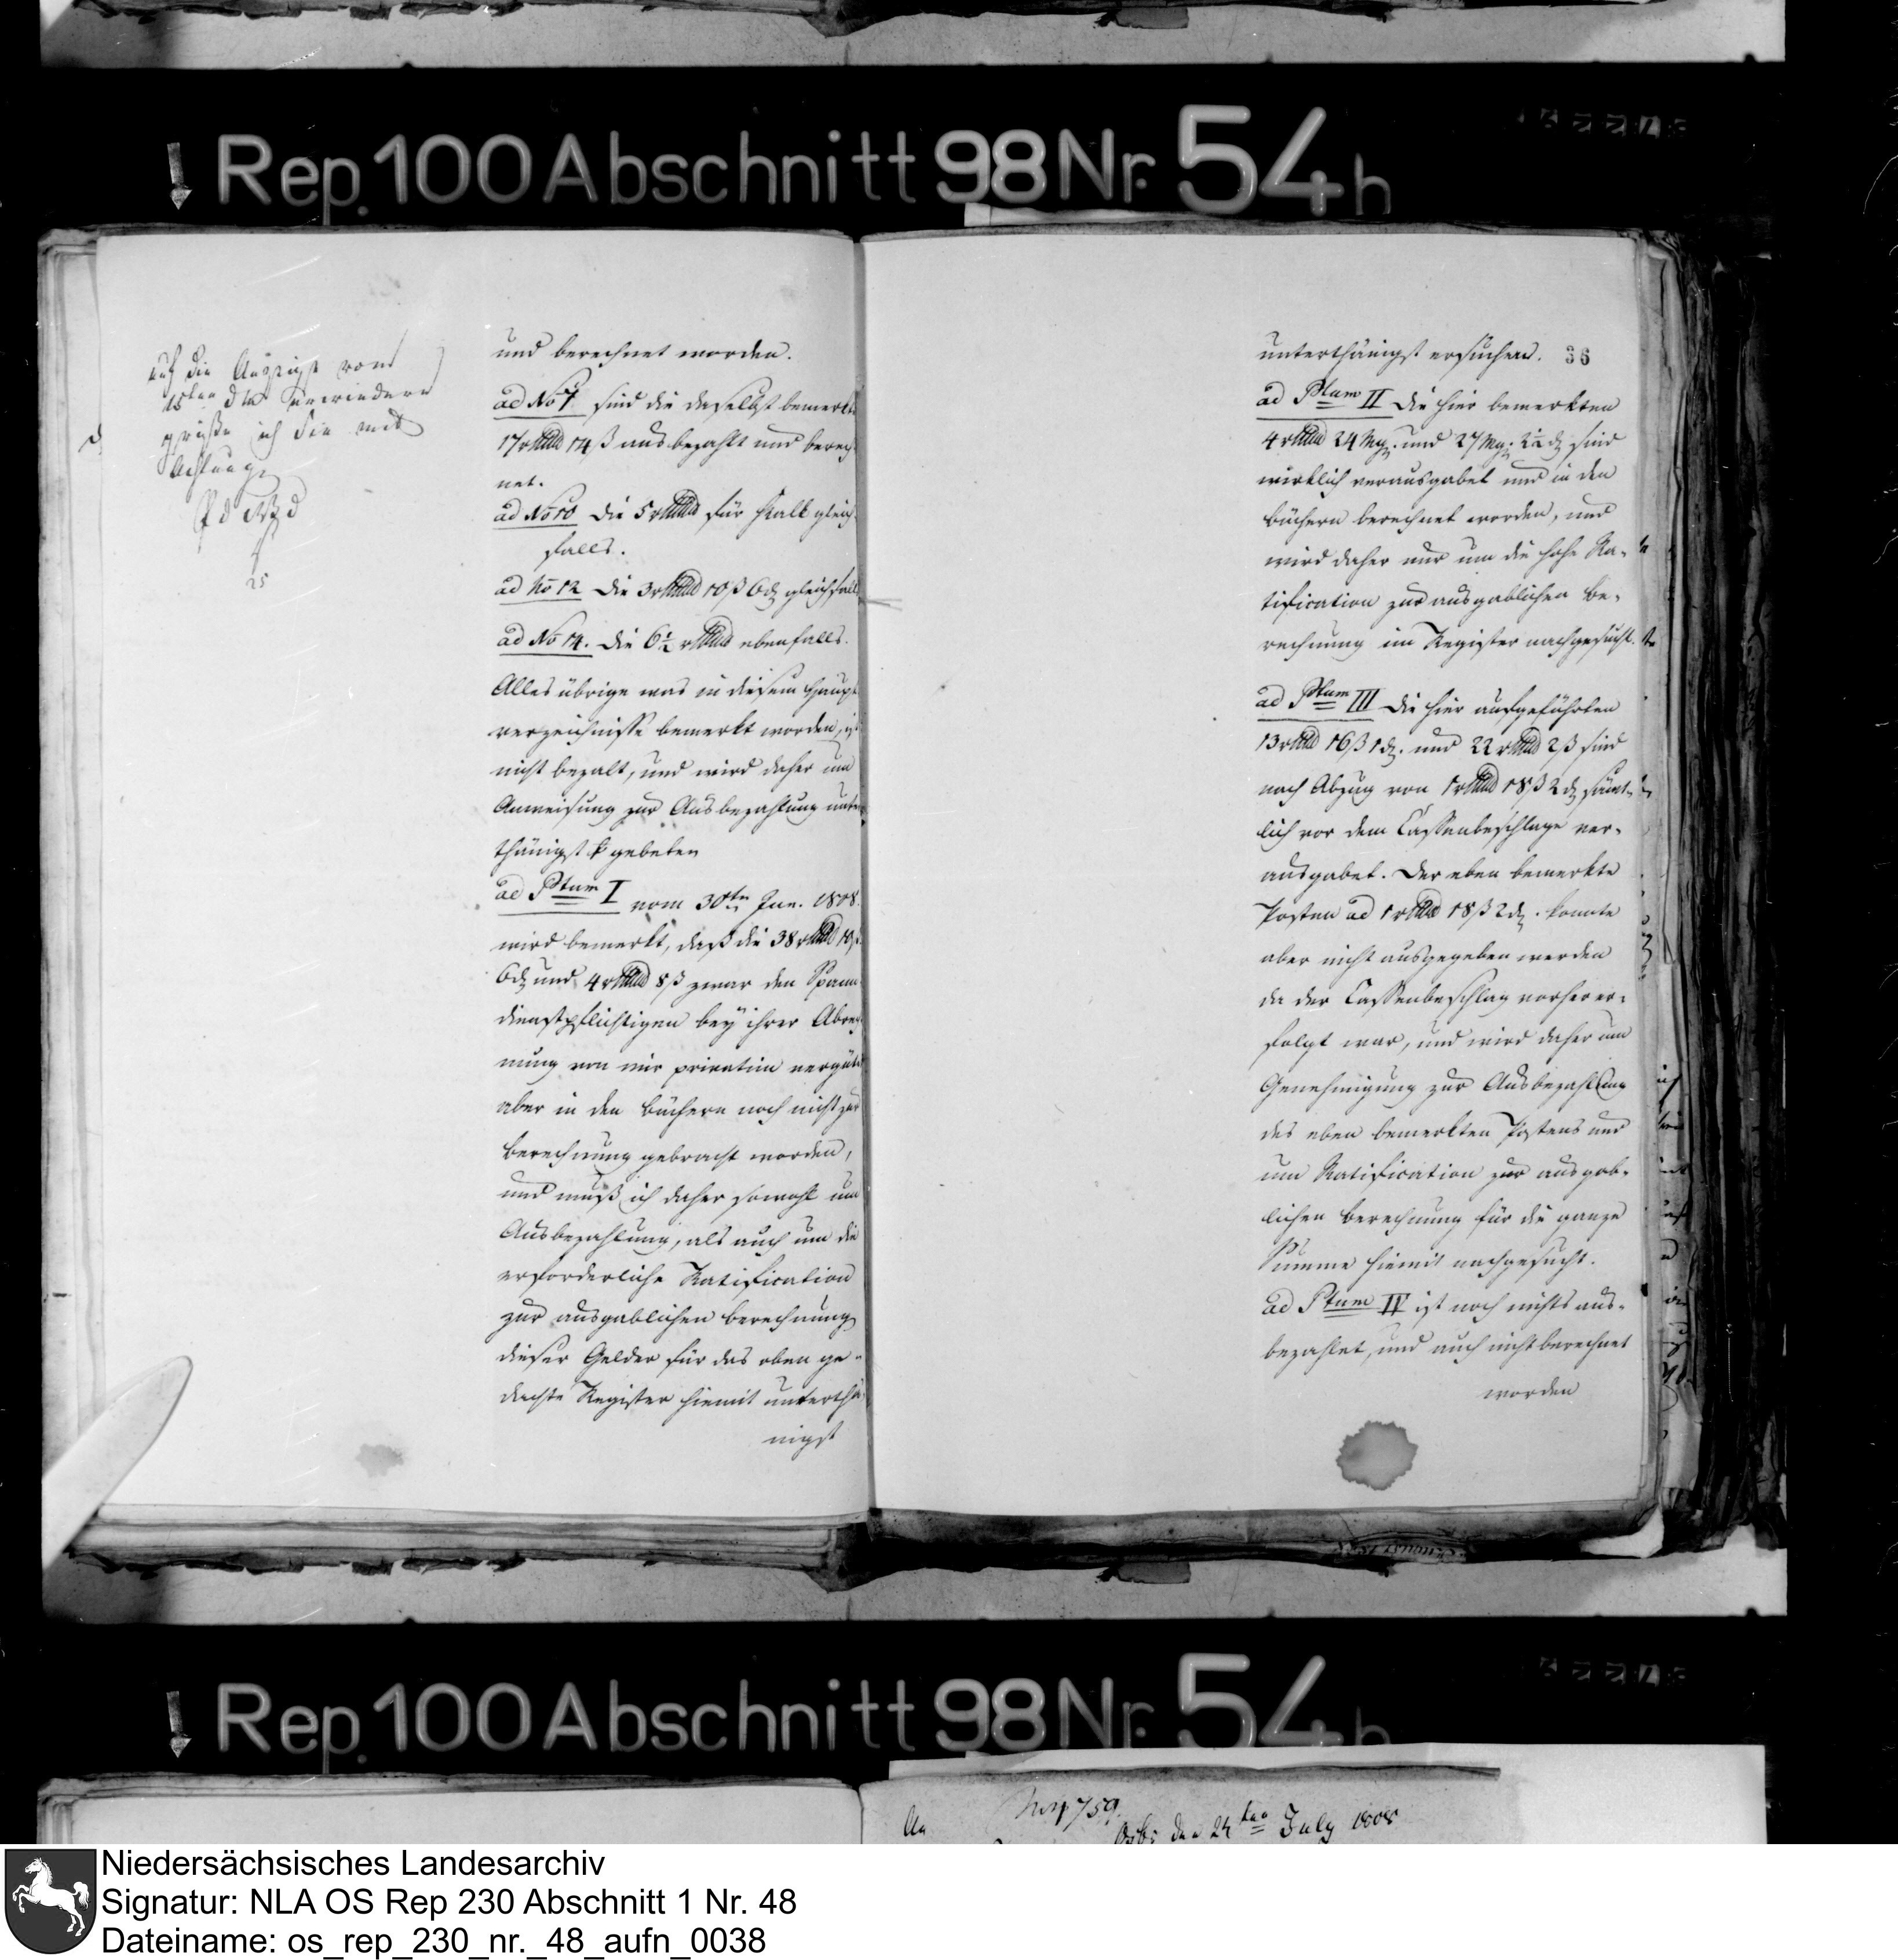 Rep. 100 Abschnitt 98 Nr. 54 h
auf die Anzeige vom
15ten d. M. erwiedern
ich Sie mit
Achtung
25
und berechnet worden.
ad No 7 sind die daselbst bemerkte
17 rthlr 14 ß ausbezahlt und berech-
net.
ad No 10 die 5 rthlr für Kalk gleich-
falls.
ad No 12 die 3 rthlr 10 ß 6 d gleichfalls
ad No 14. die 6 1/2 rthlr ebenfalls.
Alles übrige was in diesem Haupt
verzeichnisse bemerkt worden, ist
nicht bezalt, und wird daher um
Anweisung zur Ausbezahlung unter-
thänigst gebeten
ad Ptum I vom 30ten Jun. 1808.
wird bemerkt, daß die 38 rthlr 10 ß
6 d und 4 rthlr 8 ß zwar den Spann-
dienstpflichtigen bey ihrer Abrech-
nung von mir privatim vergütet
aber in den Büchern noch nicht zur
Berechnung gebracht worden,
und muß ich daher sowohl um
Ausbezahlung, als auch um die
erforderliche Ratification
zur ausgablichen Berechnung
dieser Gelder für das oben ge-
dachte Register hiemit unterthä-
nigst
unterthänigst ersuchen. 36
ad Ptum II die hier bemerkten
4 rthlr 24 Mg. und 27 Mg. 2 1/2 d sind
wirklich verausgabet und in den
Büchern berechnet worden, und
wird daher nur um die hohe Ra-
tification zur ausgablichen Be-
rechnung im Register nachgesucht.
ad Ptum III die hier aufgeführten
13 rthlr 16 ß 1 d. und 22 rthlr 2 ß sind
nach Abzug von 1 rthlr 18 ß 2 d sämt-
lich vor dem Cassenbeschlage ver-
ausgabet. Der eben bemerkte
Posten ad 1 rthlr 18 ß 2 d. konnte
aber nicht ausgegeben werden
da der Cassenbeschlag vorher er-
folgt war, und wird daher um
Genehmigung zur Ausbezahlung
des eben bemerkten Postens und
um Ratification zur ausgab-
lichen Berechnung für die ganze
Summe hiemit nachgesucht.
ad Ptum IV ist noch nichts aus-
bezahlet, und auch nicht berechnet
worden
Rep. 100 Abschnitt 98 Nr. 54 h
An
759.
Osbr. den 24ten July 1808
Niedersächsisches Landesarchiv
Signatur: NLA OS Rep 230 Abschnitt 1 Nr. 48
Dateiname: os_rep_230_nr._48_aufn_0038